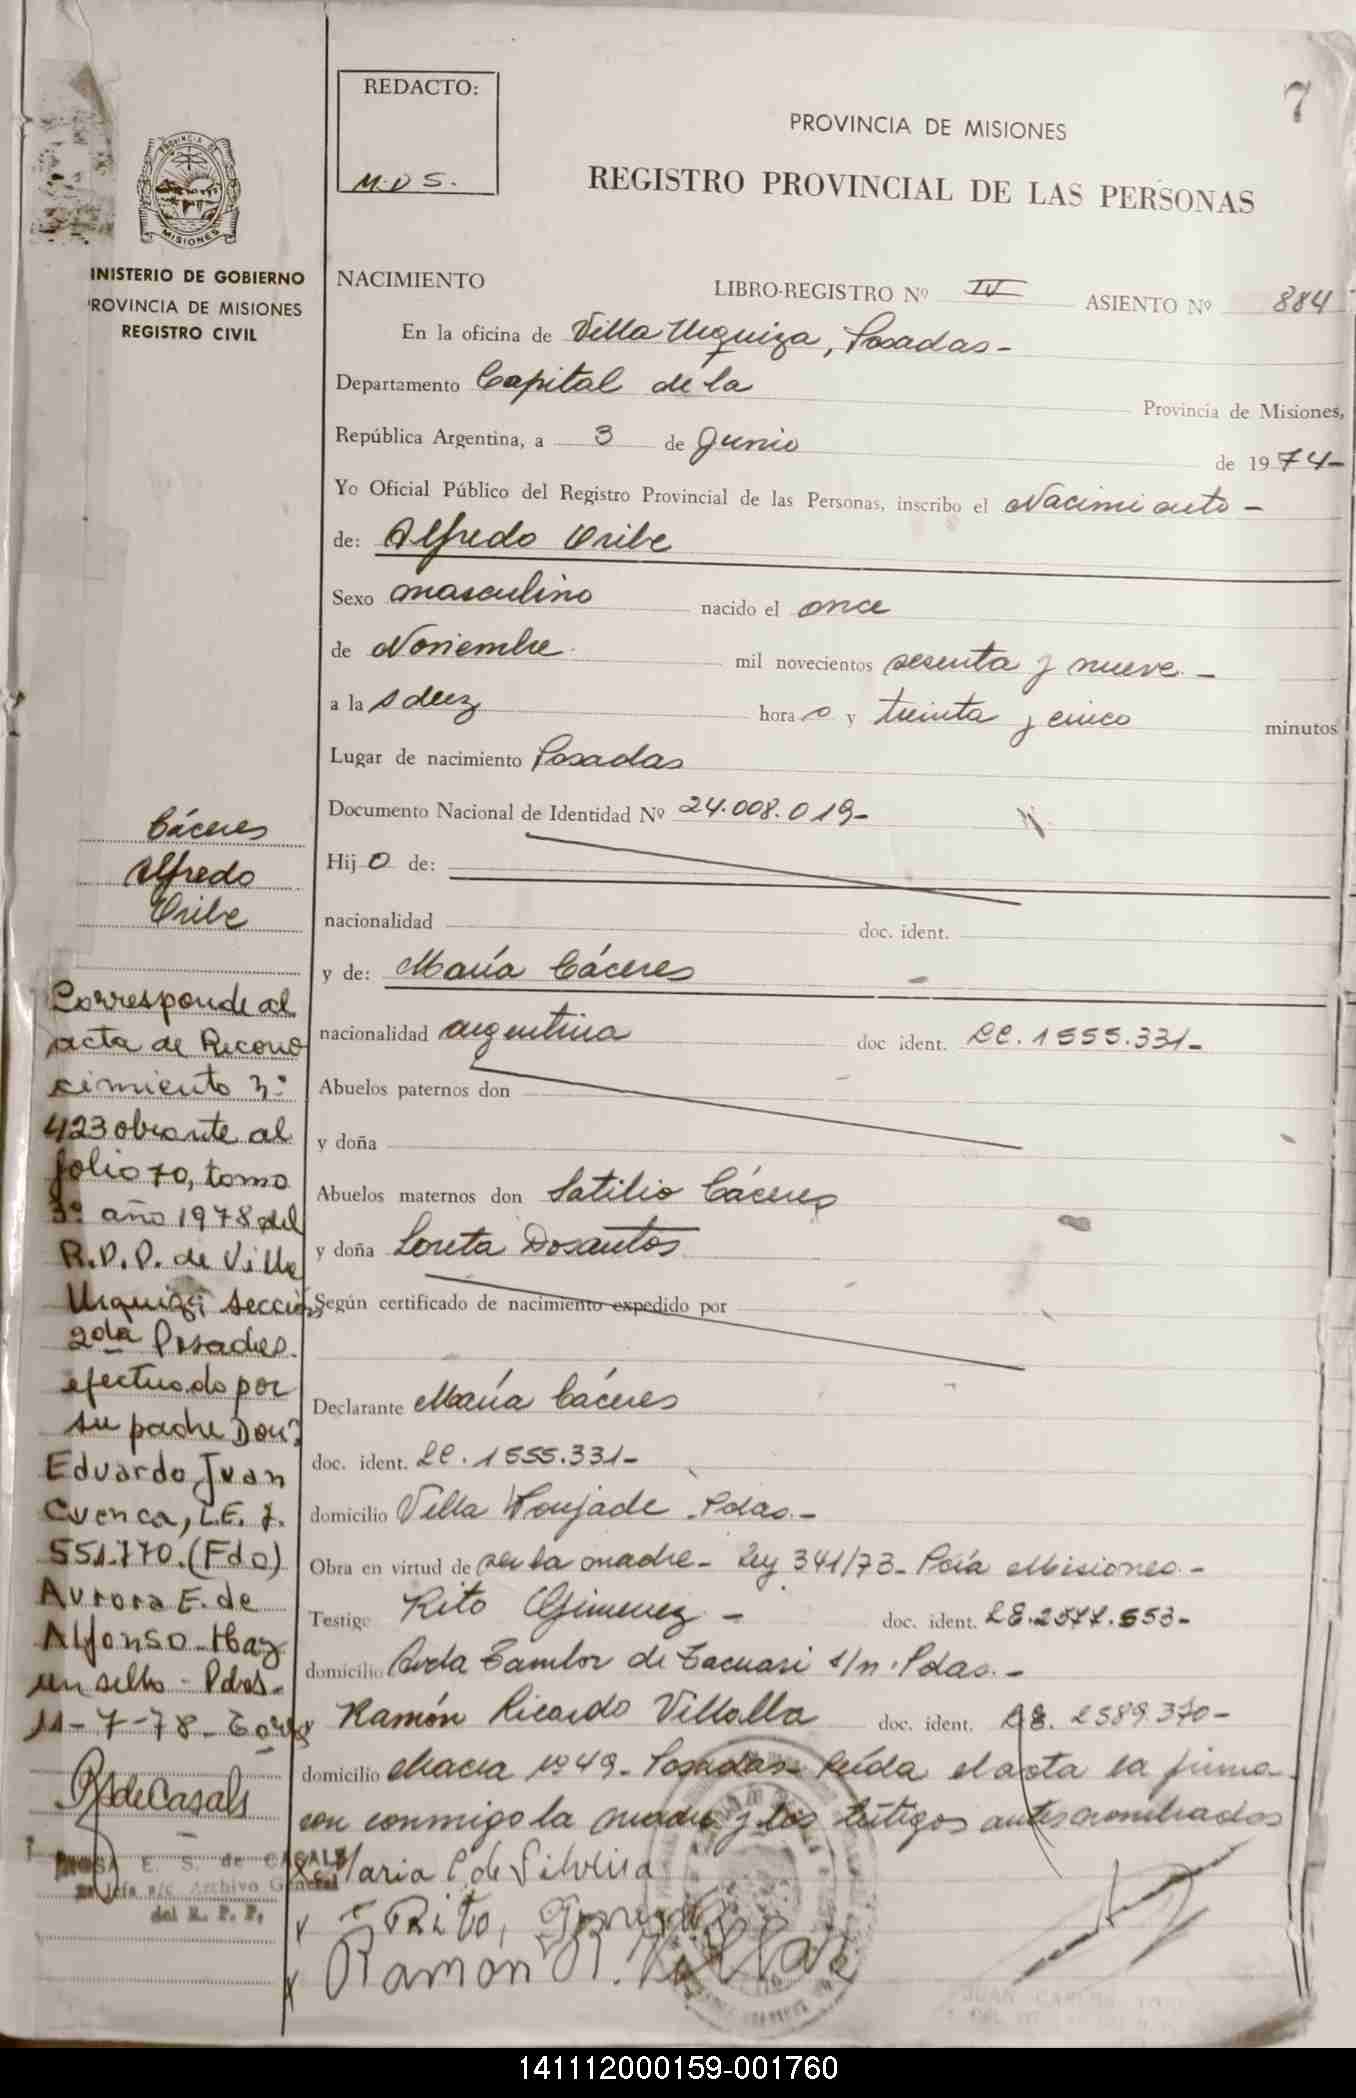 7
REDACTO:
M.D S.
PROVINCIA DE MISIONES
REGISTRO PROVINCIAL DE LAS PERSONAS
PROVINCIA DE
MISIONES
INISTERIO DE GOBIERNO
ROVINCIA DE MISIONES
REGISTRO CIVIL
NACIMIENTO LIBRO-REGISTRO Nº IV ASIENTO Nº 884
En la oficina de Villa Urquiza, Posadas-
Departamento Capital de la Provincia de Misiones,
República Argentina, a 3 de Junio de 1974-
Yo Oficial Público del Registro Provincial de las Personas, inscribo el Nacimiento-
de: Alfredo Uribe
Sexo masculino nacido el once
de Noviembre mil novecientos sesenta y nueve-
a la s diez hora s y treinta y cinco minutos
Lugar de nacimiento Posadas
Documento Nacional de Identidad Nº 24.008.019-
Hij o de:
nacionalidad doc. ident.
y de: María Cáceres
nacionalidad argentina doc ident. LC. 1555.331-
Abuelos paternos don
y doña
Abuelos maternos don Satilio Cáceres
y doña Loreta Dosantos
Según certificado de nacimiento expedido por
Declarante María Cáceres
doc. ident. LC. 1555.331-
domicilio Villa Poujade Pdas.-
Obra en virtud de ser la madre- Ley 341/73- Pcia Misiones.-
Testigo Rito Gimenez- doc. ident. LE.2577.553-
domicilio Avda Tambor de Tacuari s/n. Pdas.-
y Ramón Ricardo Villalla doc. ident. LE. 2589.370-
domicilio Nº 49- Posadas- Leída el acta la firma
con conmigo la madre y los testigos antes nombrados
Maria C. de Silveira
Rito,
Ramon R.
Cáceres
Alfredo
Uribe
Corresponde al
acta de Recono
cimiento nº
423 obrante al
folio 70, tomo
3º año 1978 del
R.P.P. de Villa
Urquiza sección
2da Posadas.
efectuado por
su padre Don:
Eduardo Juan
Cuenca, L.E. 7.
551.770. (Fdo)
Aurora E. de
Alfonso-Hay
un sello- Pdas-
11-7-78-
de Casals
E. S. de CASALS
Archivo General
del R. P. P.
141112000159-001760